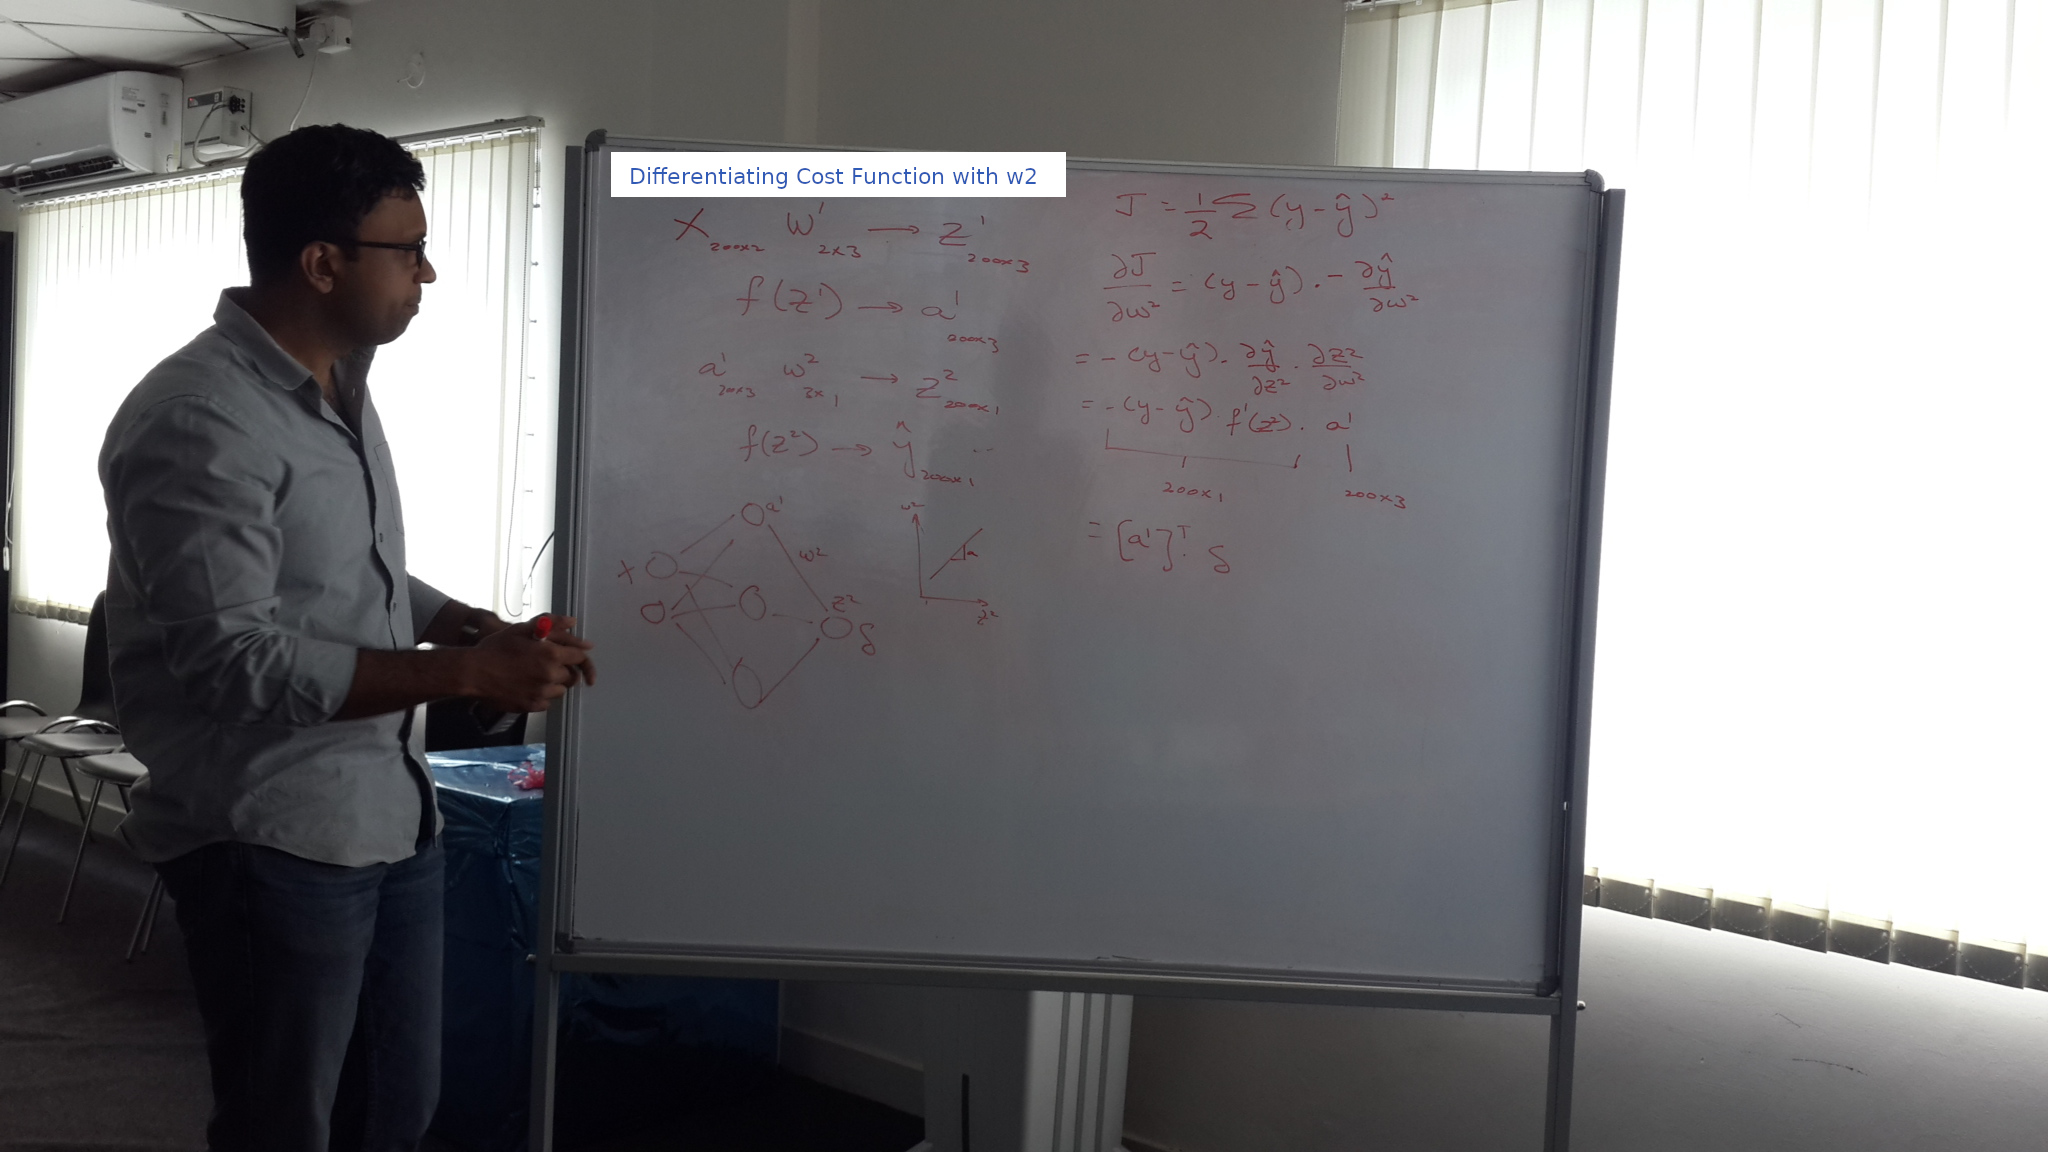 Differentiating Cost Function with w2
X 200x2 W¹ 2x3 → Z¹ 200x3
f(z¹) → a¹ 200x3
a¹ 200x3 w² 3x1 → z² 200x1
f(z²) → ŷ 200x1
a¹
w²
X
z²
δ
w²
a
z²
J = 1/2 Σ (y - ŷ)²
∂J/∂w² = (y - ŷ) . - ∂ŷ/∂w²
= - (y - ŷ) . ∂ŷ/∂z² . ∂z²/∂w²
= - (y - ŷ) . f'(z²) . a¹
200x1 200x3
= [a¹]ᵀ . δ